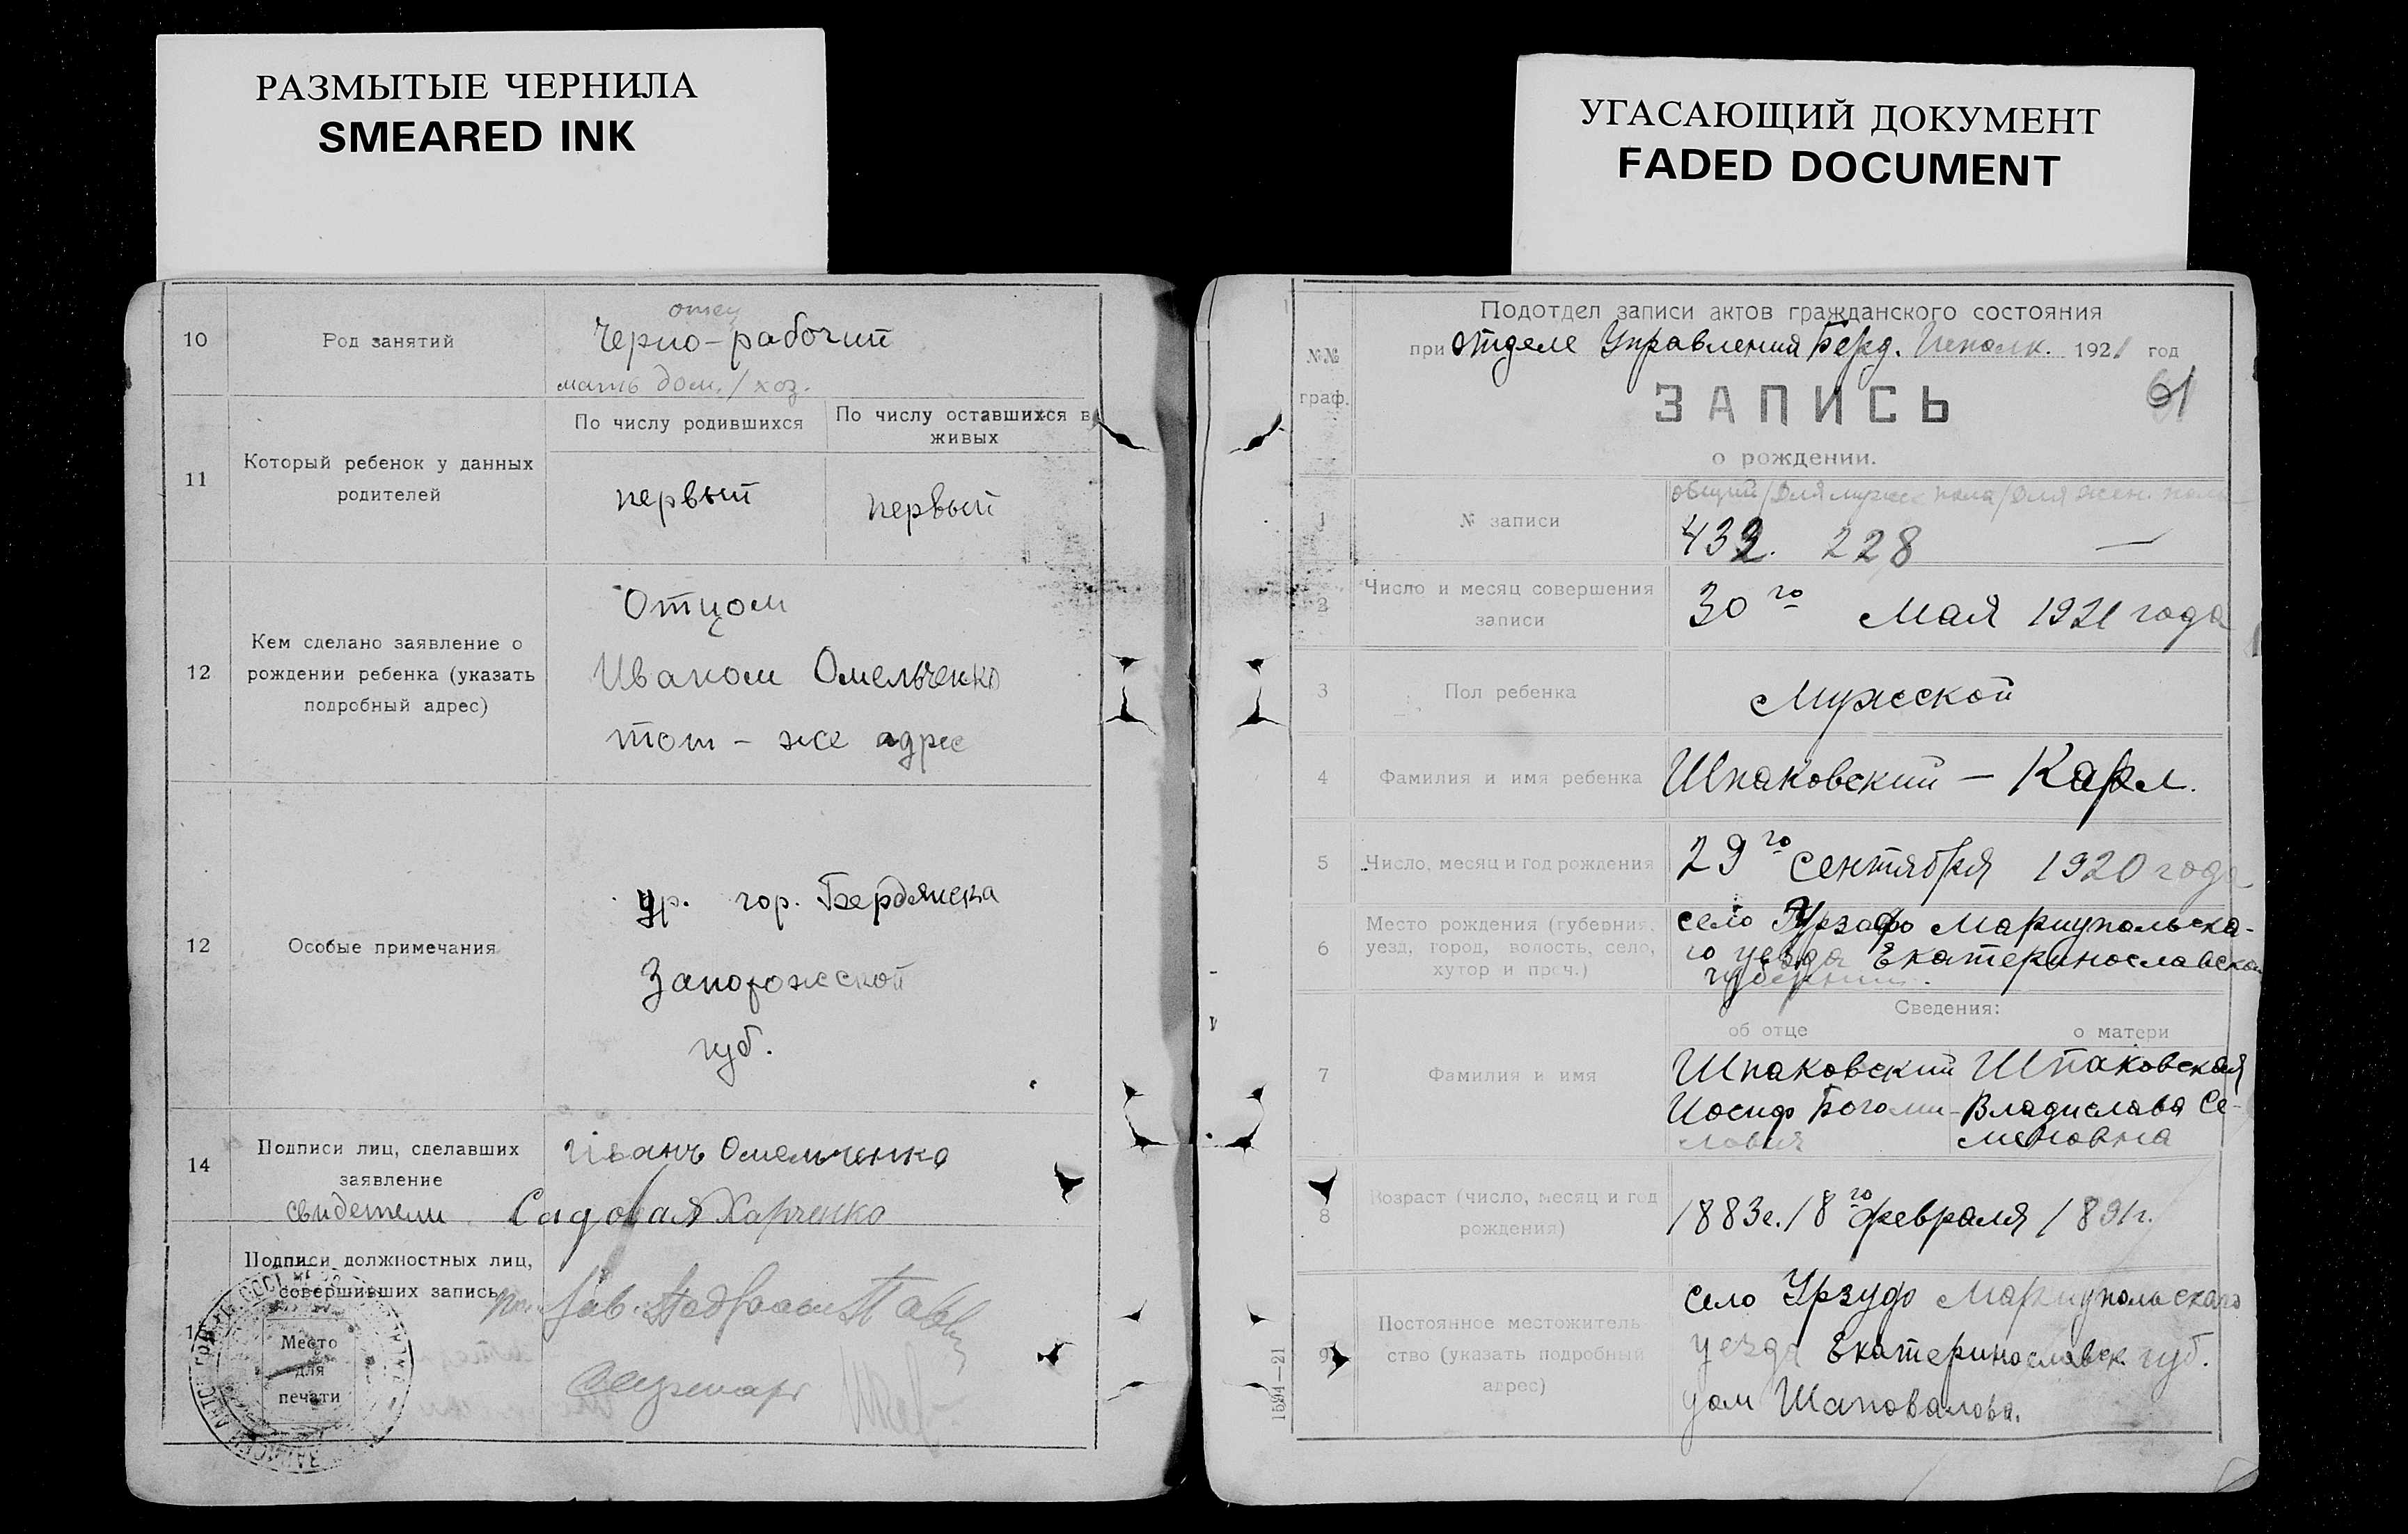 РАЗМЫТЫЕ ЧЕРНИЛА
SMEARED INK
10
Род занятий
отец
Черно-рабочий
мать дом./хоз.
11
Который ребенок у данных
родителей
По числу родившихся
По числу оставшихся в
живых
первый
первый
12
Кем сделано заявление о
рождении ребенка (указать
подробный адрес)
Отцом
Иваном Омельченко
тот-же адрес
12
Особые примечания
ур. гор. Бердянска
Запорожской
губ.
14
Подписи лиц, сделавших
заявление
Иванъ Омельченко
свидетели Садовая Харченко
Подписи должностных лиц,
совершивших запись
Зав.
Секретарь
Место
для
печати
УГАСАЮЩИЙ ДОКУМЕНТ
FADED DOCUMENT
№№
граф.
Подотдел записи актов гражданского состояния
при отделе Управления Берд. Исполк. 1921 год
ЗАПИСЬ
61
о рождении.
1
№ записи
общий/для мужск пола/для жен. пола
432. 228 —
2
Число и месяц совершения
записи
30го Мая 1921 года
3
Пол ребенка
Мужской
4
Фамилия и имя ребенка
Шпаковский — Карл.
5
Число, месяц и год рождения
29го Сентября 1920 года
6
Место рождения (губерния,
уезд, город, волость, село,
хутор и проч.)
село Урзоф Мариупольска-
го уезда Екатеринославской
губернии.
Сведения:
об отце
о матери
7
Фамилия и имя
Шпаковский
Иосиф Богоми-
лович
Шпаковская
Владислава Се-
меновна
8
Возраст (число, месяц и год
рождения)
1883г. 18го февраля 1891г.
9
Постоянное местожитель-
ство (указать подробный
адрес)
село Урзуф Мариупольскаго
уезда Екатеринославск. губ.
дом Шаповалова.
1594—21